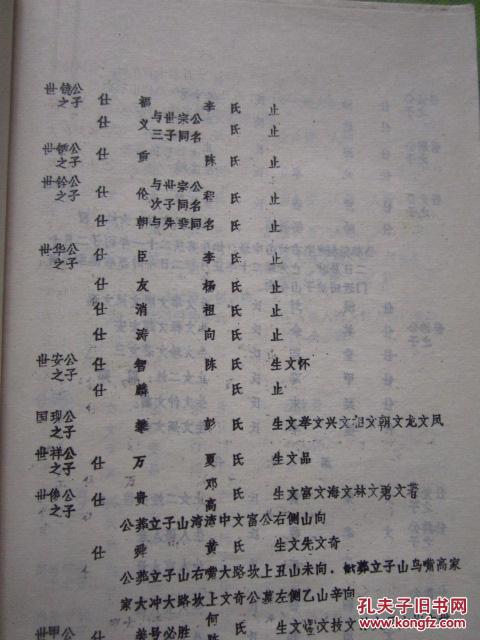 世镜公之子 仕 福 李 氏 止
仕 义 与世宗公三子同名 氏 止
公之子 仕 陈 氏 止
世铨公之子 仕 伦 与世宗公次子同名 程 氏 止
仕 朝 与先辈同名 氏 止
世华公之子 仕 臣 李 氏 止
仕 友 杨 氏 止
仕 消 祖 氏 止
仕 涛 向 氏 止
世安公之子 仕 智 陈 氏 生文怀
仕 麟 氏 止
国现公之子 仕 攀 彭 氏 生文举文兴文相文朝文龙文凤
世祥公之子 仕 万 夏 氏 生文品
世俊公之子 仕 贵 邓高 氏 生文富文海文林文碧文著
公葬立子山湾湾中文富公右侧山向
仕 舜 黄 氏 生文先文奇
公葬立子山右嘴大路坎上丑山未向．葬立子山鸟嘴高家
家大冲大路坎上文奇公墓左侧乙山辛向
世甲公 仕 举号必胜 何陈 氏 生文文技文
孔夫子旧书网